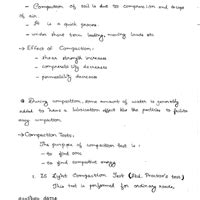 - Compaction of soil is due to compression and escape of air.
- It is a quick process.
- under short term loading, moving loads etc
→ Effect of Compaction:
- shear strength increases
- compressibility decreases
- permeability decreases
During compaction, some amount of water is generally added to have a lubrication effect b/w the particles to facilitate easy compaction
→ Compaction Tests:
The purpose of compaction test is:
- to find OMC
- to find compactive energy
1. IS Light Compaction Test (Std. Proctor's test)
This test is performed for ordinary roads.